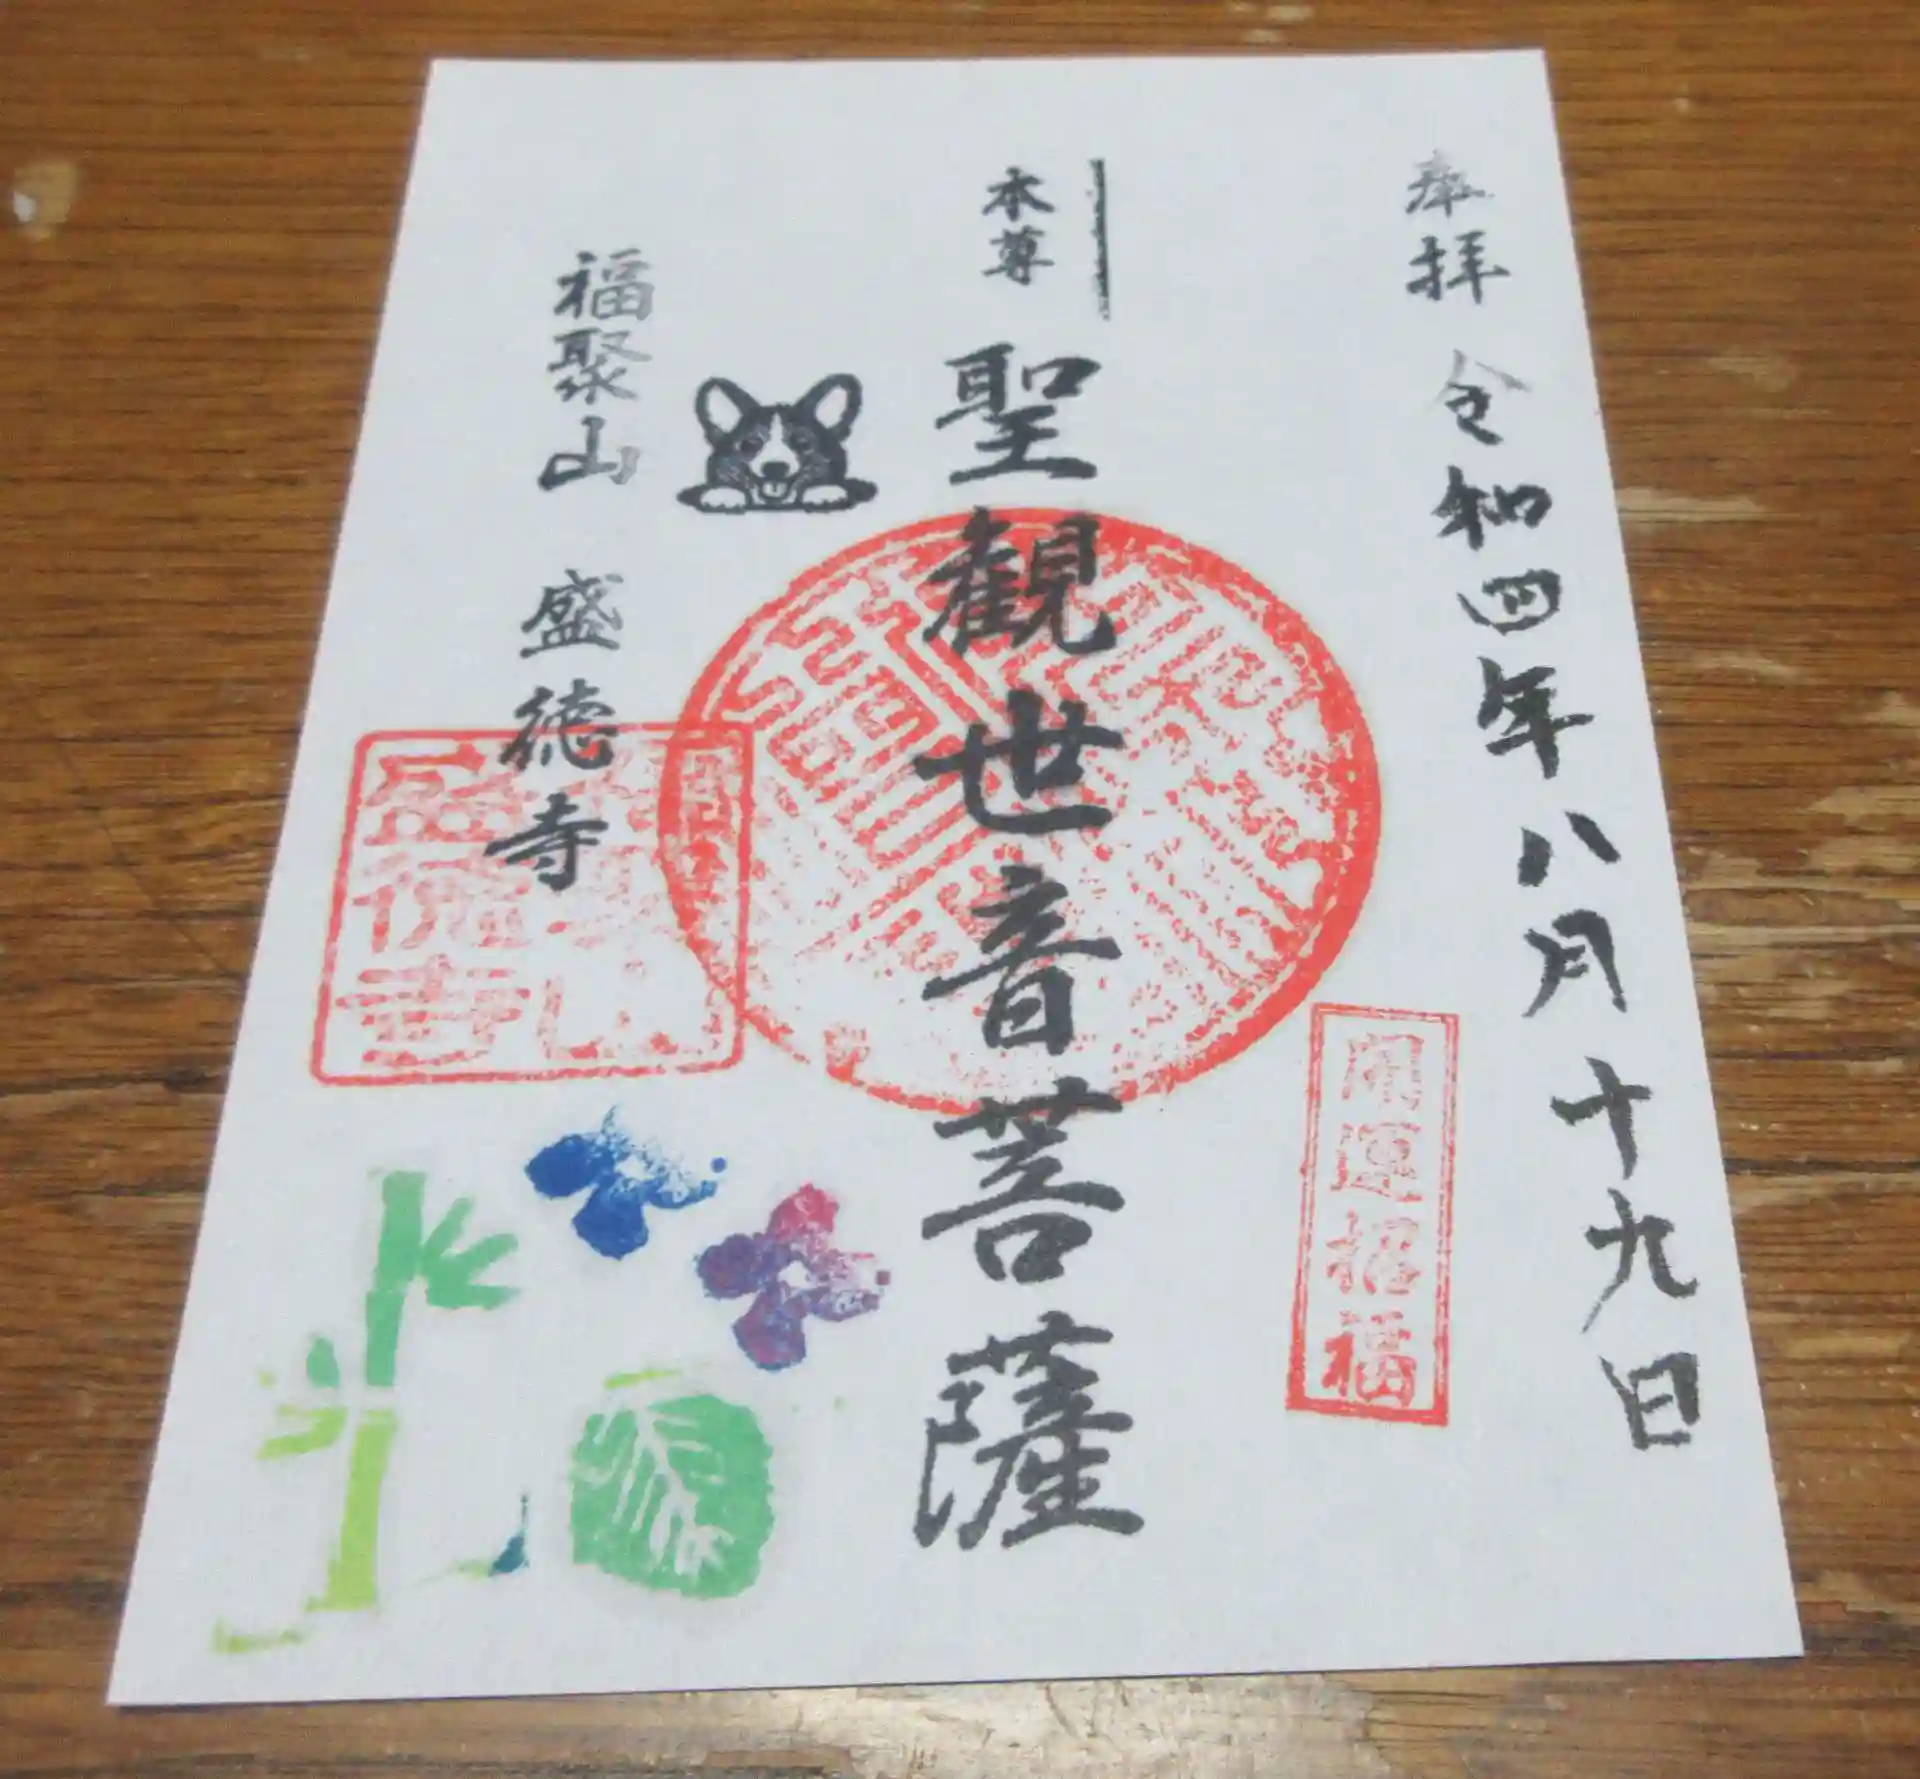 奉拝 令和四年八月十九日
開運招福
本尊 聖観世音菩薩
福聚山 盛徳寺